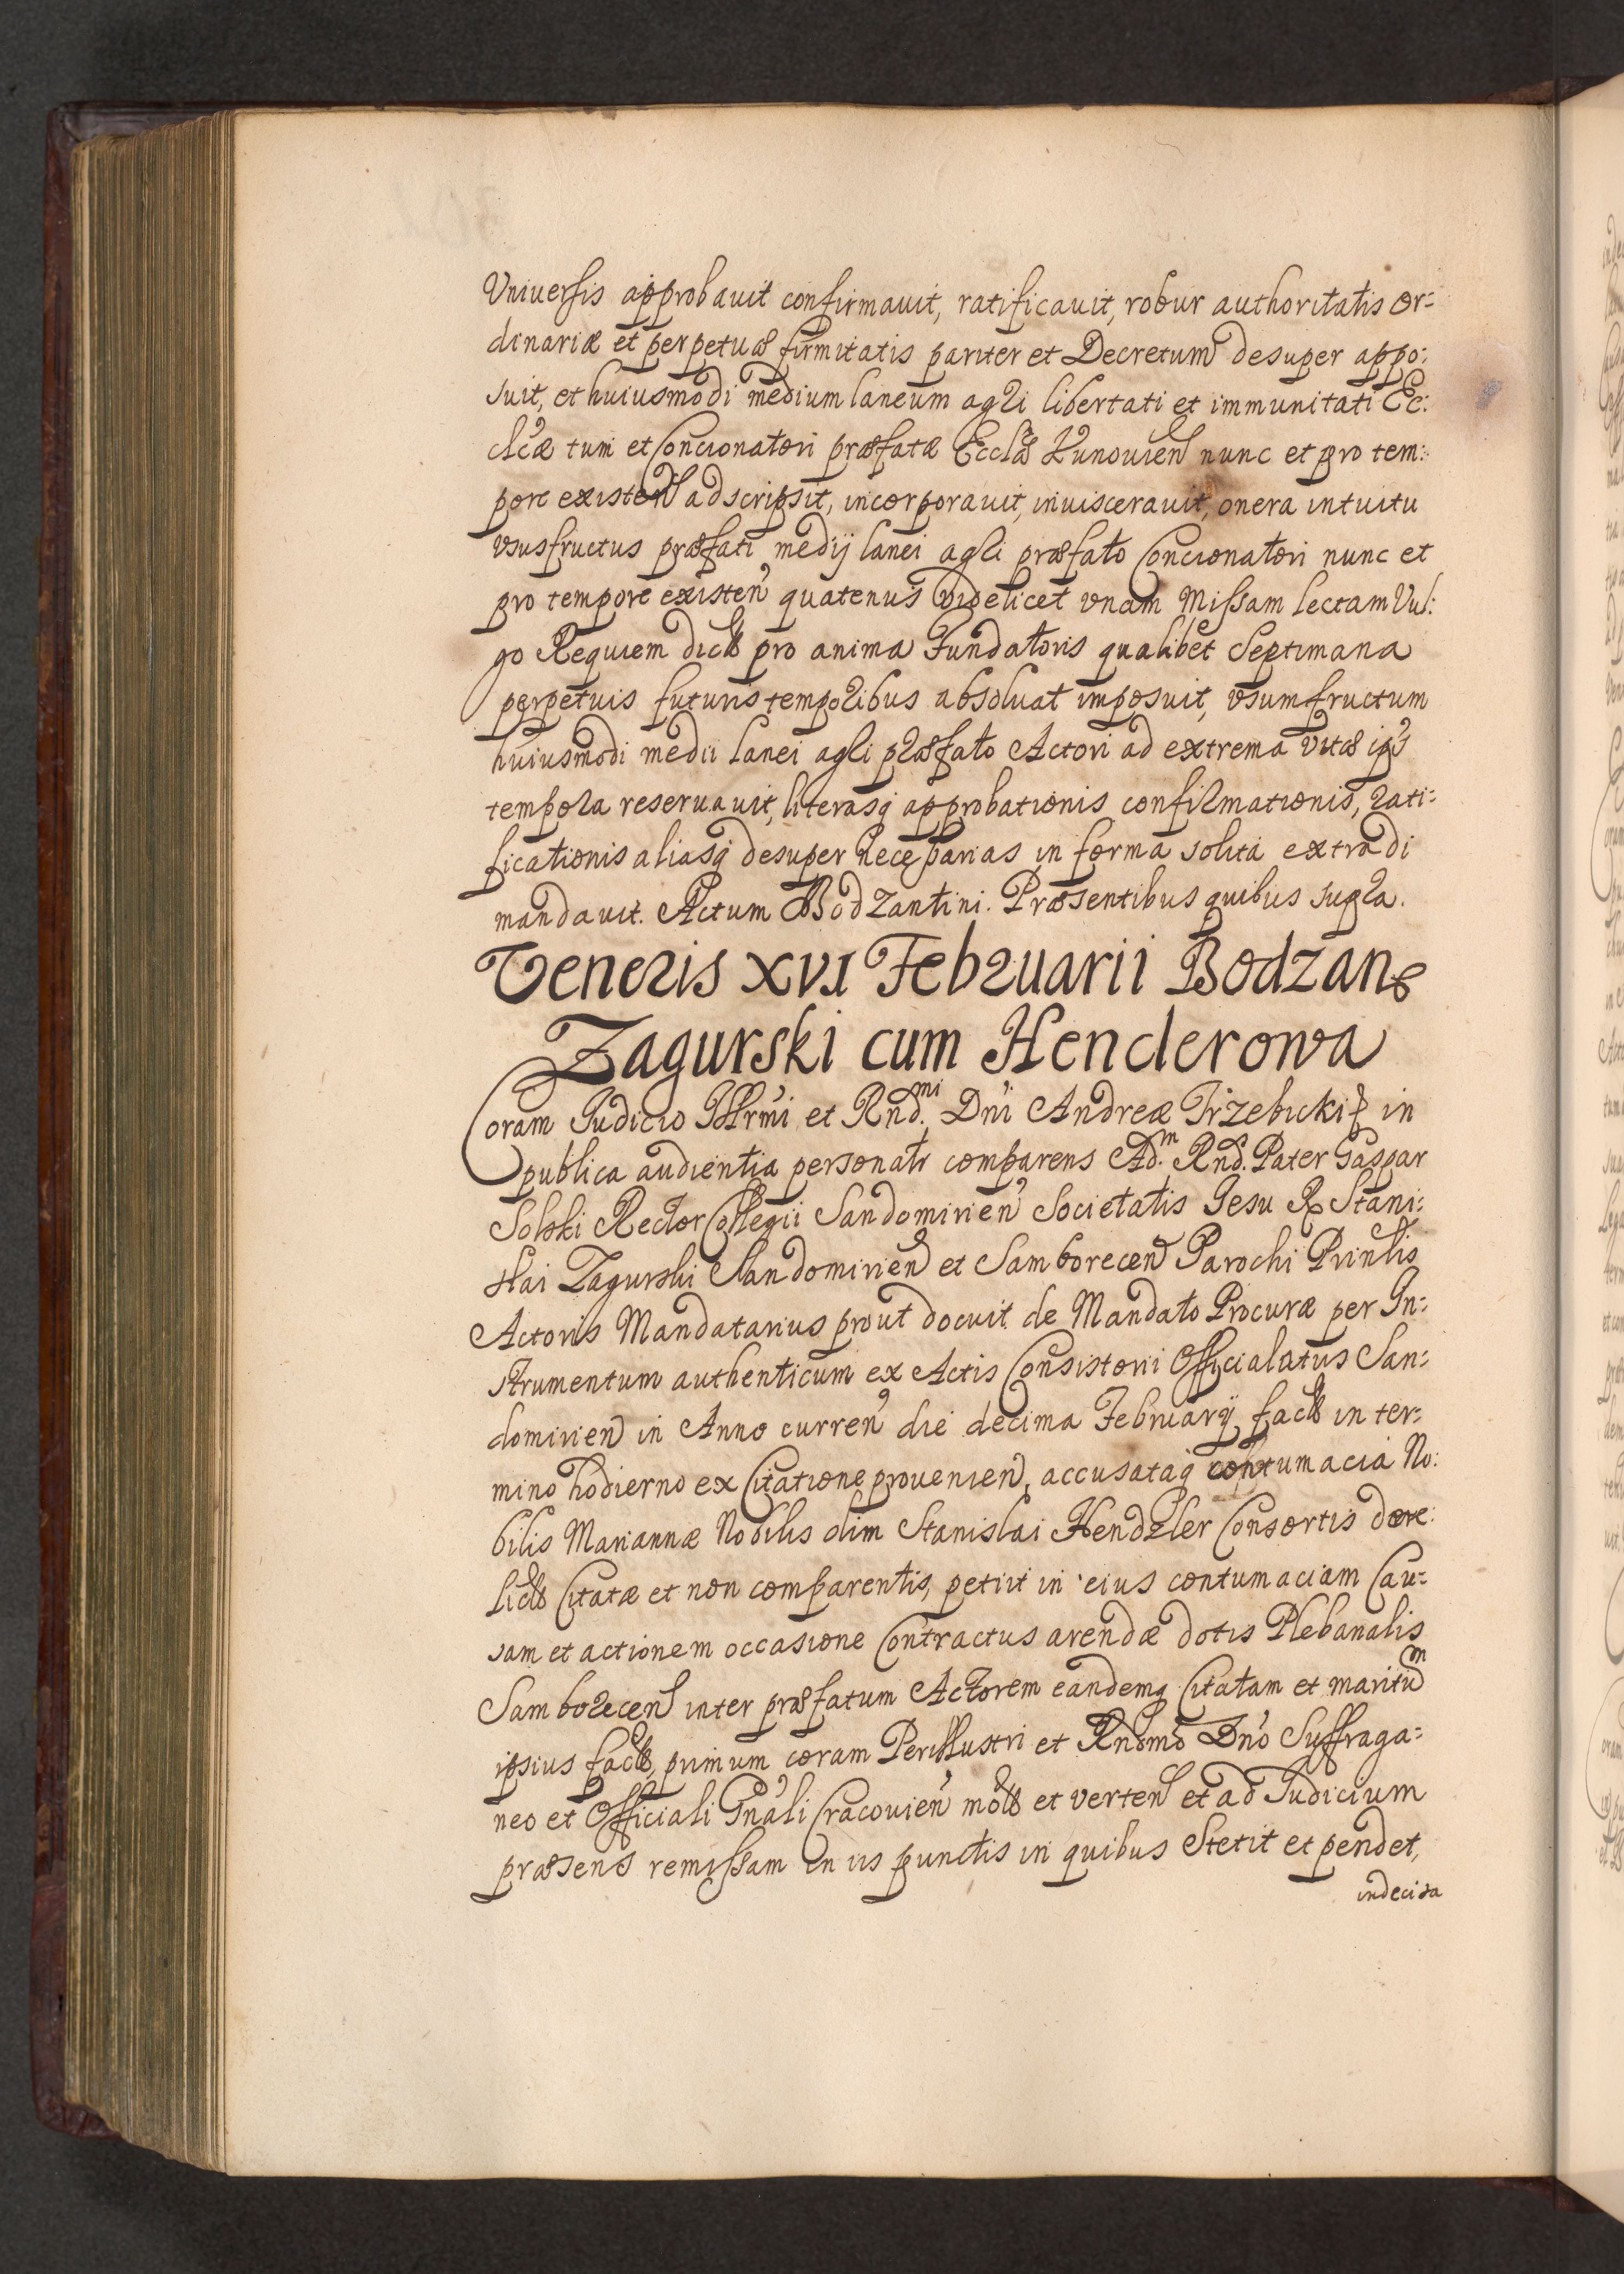 Universis approbavit confirmavit, ratificavit, robur authoritatis or=
dinariæ et perpetuæ firmitatis pariter et Decretum desuper appo:
suit, et huiusmodi medium laneum agri libertati et immunitati Ec:
clicæ tum et Concionatori præfatæ Ecclæ Kunovien nunc et pro tem:
pore existen adscripsit, incorporavit, invisceravit, onera intuitu
vsusfructus præfati medij lanei agri præfato Concionatori nunc et
pro tempore existen quatenus videlicet vnam Missam lectam Vul:
go Requiem dictt pro anima Fundatoris qualibet Septimana
perpetuis futuris temporibus absoluat imposuit, vsumfructum
huiusmodi medii lanei agri præfato Actori ad extrema vitæ ips
tempora reseruauit, literasq approbationis confirmationis, rati=
ficationis aliasq desuper necessarias in forma solita extradi
mandavit. Actum Bodzantini. Præsentibus quibus supra.
Veneris XVI Februarii Bodzan
Zagurski cum Henderowa
Coram Judicio Illrmi et Rnd.mi Dni Andreæ Trzebicki in
publica audientia personalr comparens Ad.m Rnd. Pater Gaspar
Solski Rector Collegii Sandomirien Societatis Jesu R Stani:
slai Zagurski Sandomirien et Samborecen Parochi Prinlis
Actoris Mandatarius prout docuit de Mandato Procuræ per In=
strumentum authenticum ex Actis Consistorii Officialatus San=
domirien in Anno curren die decima February factt in ter=
mino hodierno ex Citatione provenien, accusataq contumacia No:
bilis Mariannæ Nobilis olim Stanislai Hendzler Consortis dere:
lictt Citatæ et non comparentis, petiit in eius contumaciam Cau=
sam et actionem occasione Contractus arendæ dotis Plebanalis
Samborecen inter præfatum Actorem eandemq Citatam et maritum
ipsius factt, primum coram Perillustri et Rndmo Dno Suffraga=
neo et Officiali Gnali Cracovien mott et verten et ad Judicium
præsens remissam in iis punctis in quibus Stetit et pendet,
indecisa